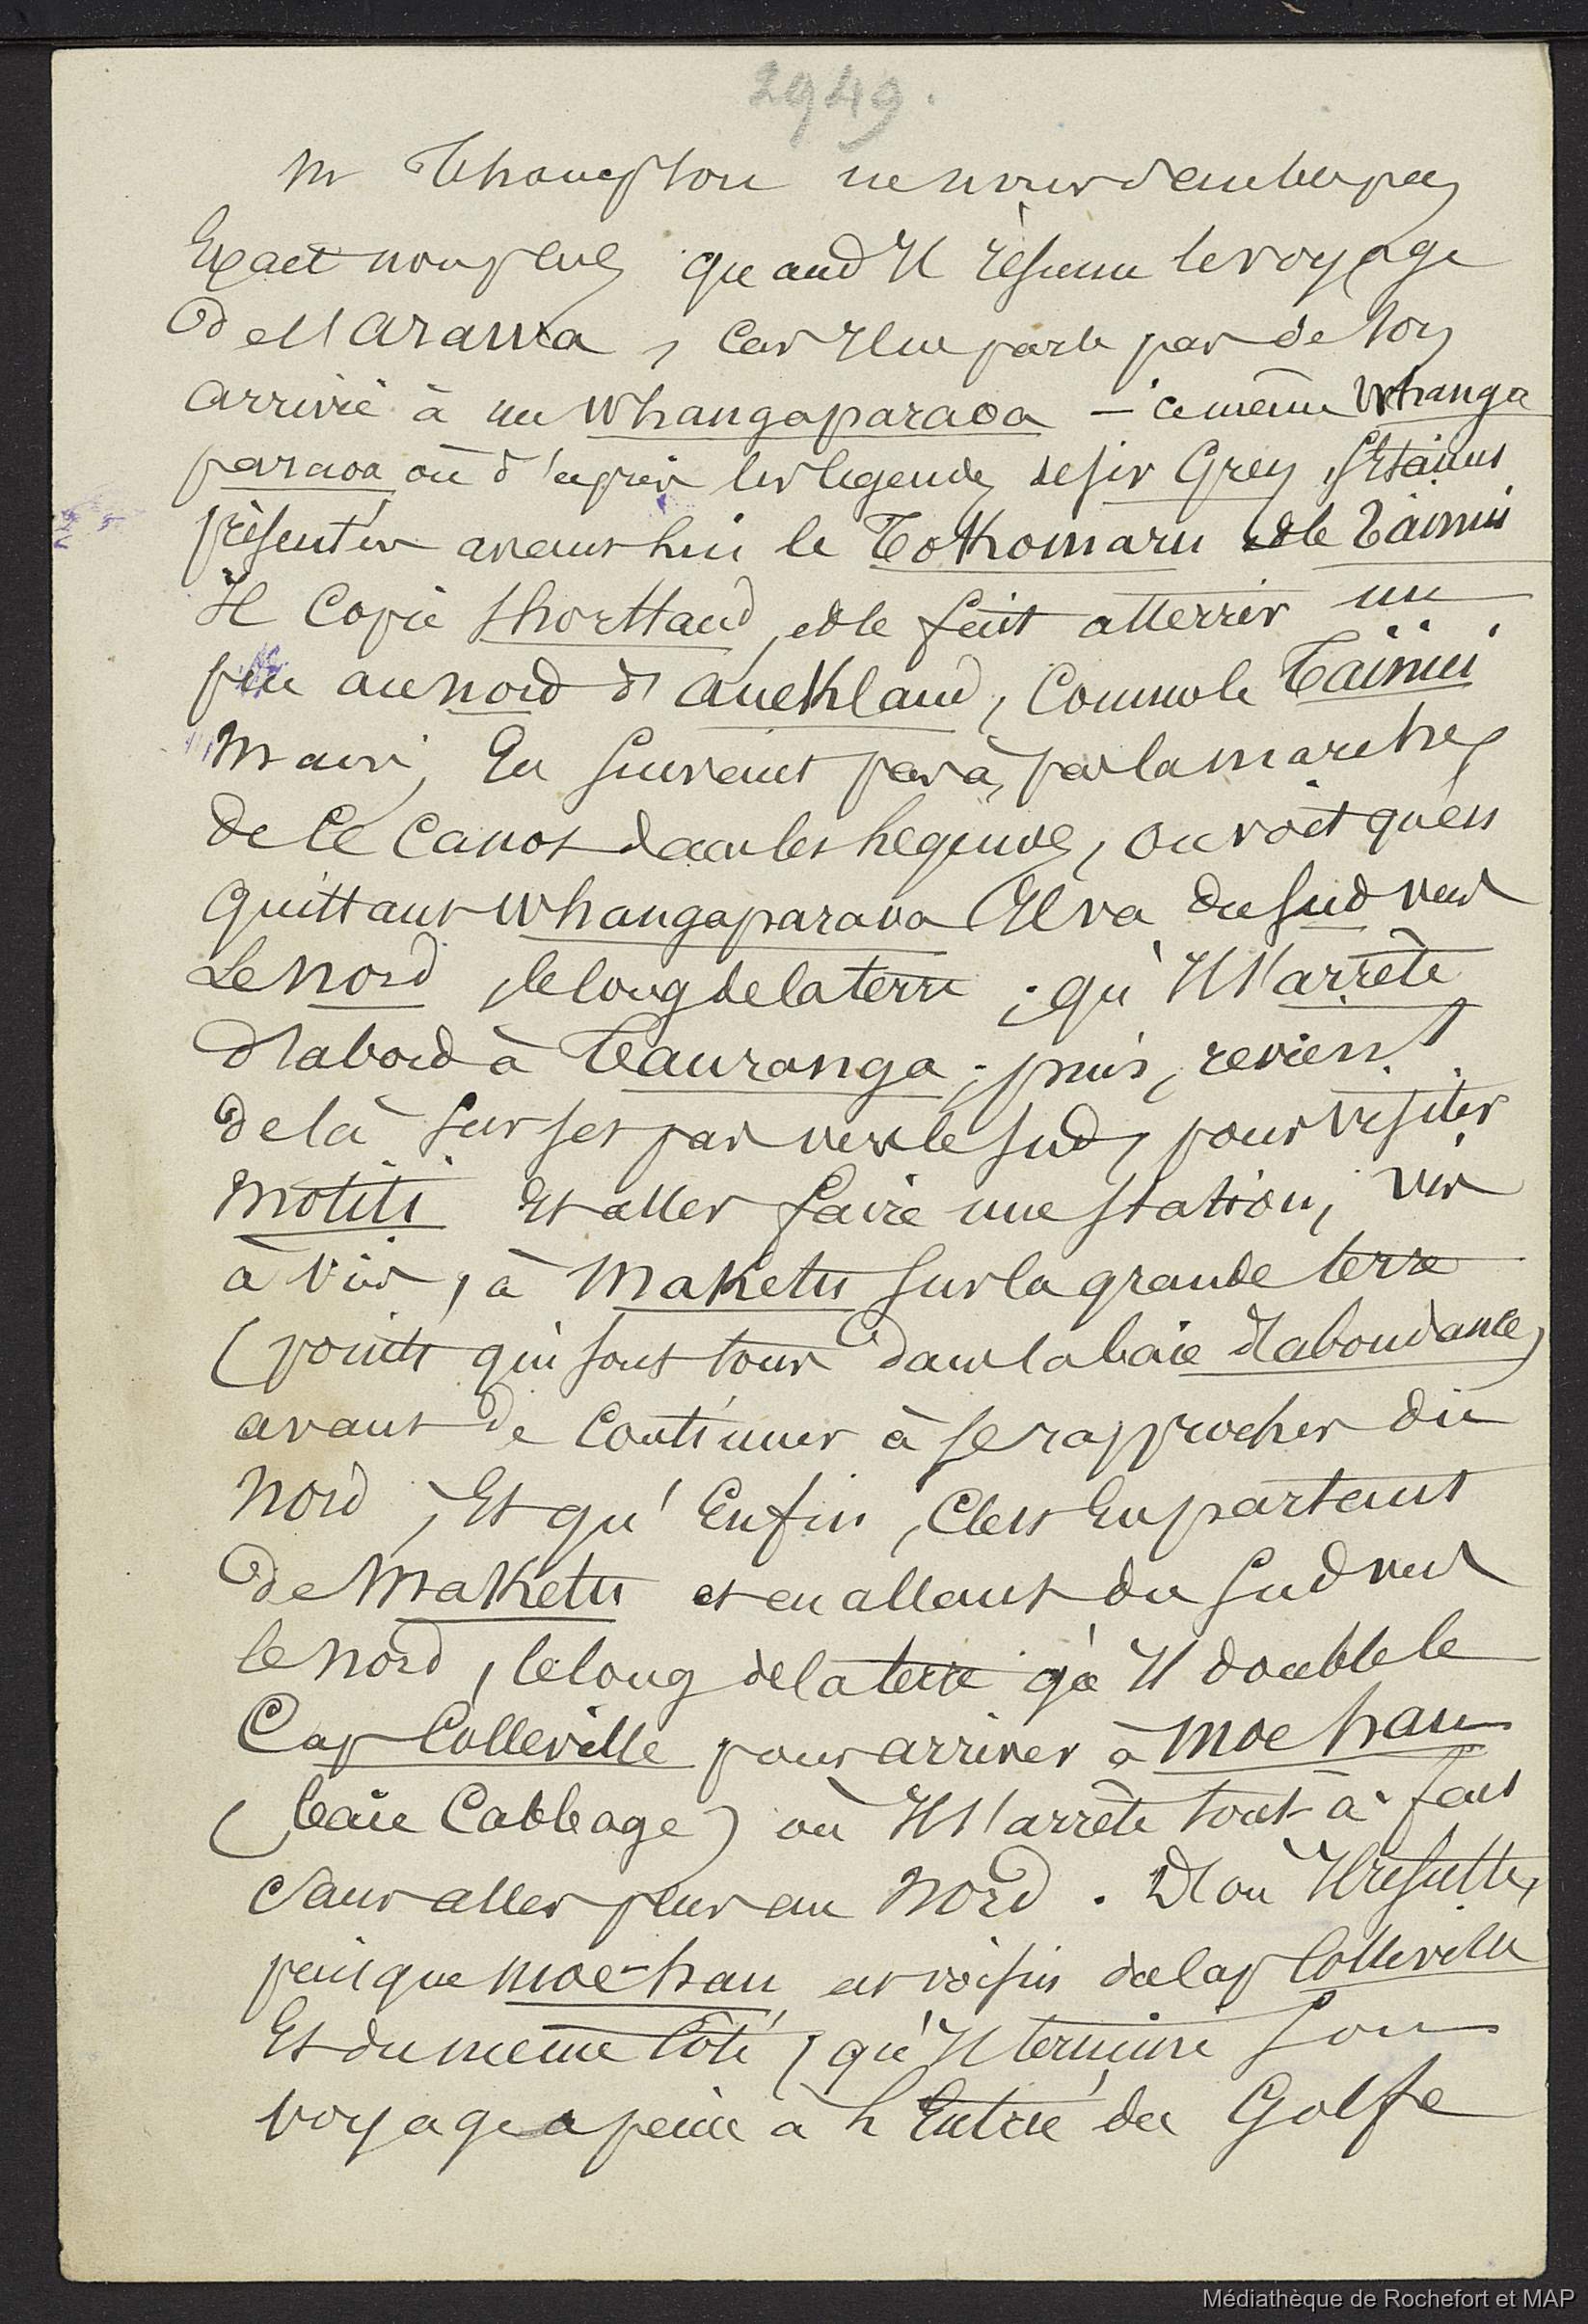 2949.
Mr Thompson ne nous semble pas
Exact non plus quand Il résume le voyage
de l'Arawa, car Il ne parle pas de son
arrivée à un Whangaparaoa – ce même Whanga
paraoa où d'après les légendes de Sir Grey s'étaient
présentés avant lui le Tokomaru et le Taïnui
Il Copie Shortland, et le fait atterrir un
peu au nord d'Auckland, Comme le Taïnui
Mais, En suivant pas à pas la marche
de Ce Canot dans les légendes, on voit qu'en
quittant Whangaparaoa Il va du Sud vers
Le nord, le long de la terre ; qu'Il s'arrête
d'abord à Tauranga ; puis, revient
de là sur ses pas vers le Sud, pour visiter
Motiti Et aller faire une station, vis
à vis, à Maketu sur la grande terre
(points qui sont tous dans la baie d'abondance)
avant de Continuer à se rapprocher du
Nord, Et qu'Enfin, C'est En partant
de Maketu et en allant du Sud vers
le Nord, le long de la terre qu'Il double le
Cap Colleville pour arriver à Moe hau
(baie Cabbage) où Il s'arrête tout à fait
Sans aller plus au Nord. D'où Il résulte,
puisque Moe-hau est voisin du Cap Colleville
Et du même Côté, qu'Il termine son
voyage à peine à l'Entrée du Golfe
Médiathèque de Rochefort et MAP